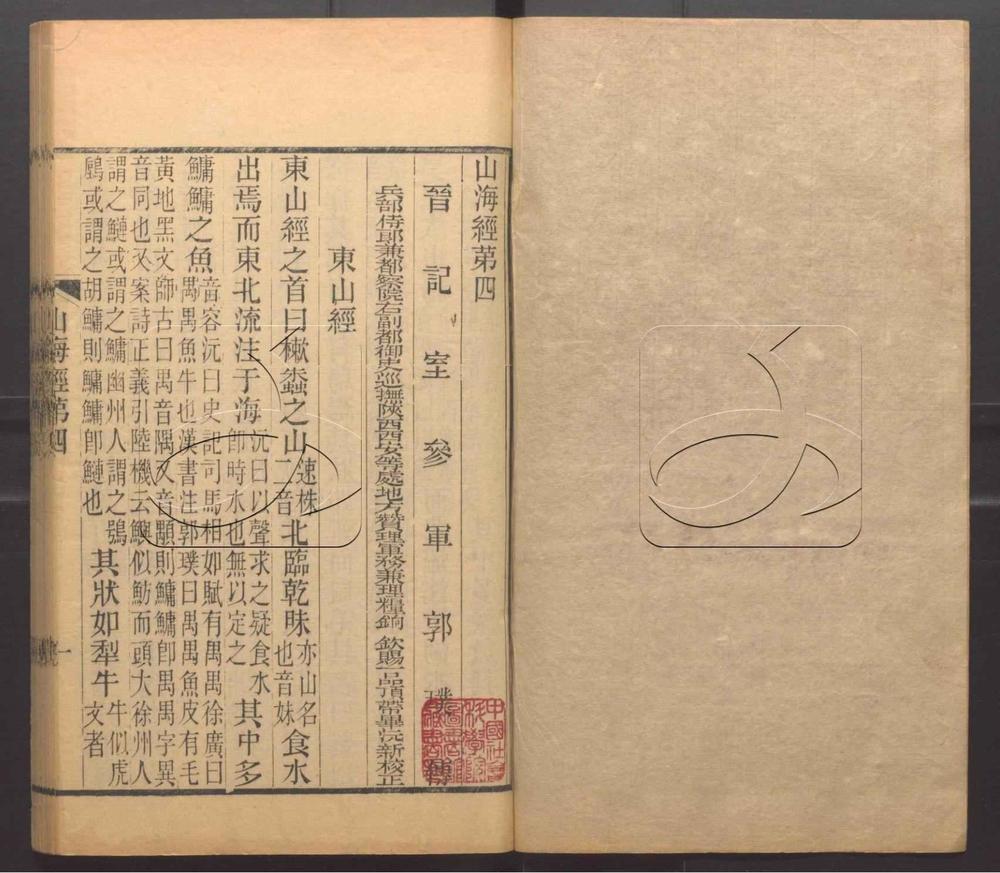 山海經第四
晉記室參軍郭璞傳
兵部侍郎兼都察院右副都御史巡撫陝西西安等處地方贊理軍務兼理糧餉 欽賜一品頂帶畢沅新校正
東山經
東山經之首曰樕𧑤之山速株二音北臨乾昧亦山名也音妹食水
出焉而東北流注于海沅曰以聲求之疑食水即時水也無以定之其中多
鱅鱅之魚音容沅曰史記司馬相如賦有禺禺徐廣曰禺禺魚牛也漢書注郭璞曰禺禺魚皮有毛
黃地黑文師古曰禺音隅又音顒則鱅鱅卽禺禺字異
音同也又案詩正義引陸機云鱮似魴而頭大徐州人
謂之鰱或謂之鱅幽州人謂之鴞
鷉或謂之胡鱅則鱅鱅卽鰱也其狀如犁牛牛似虎文者
山海經第四
一
中國社會科學院圖書館藏書